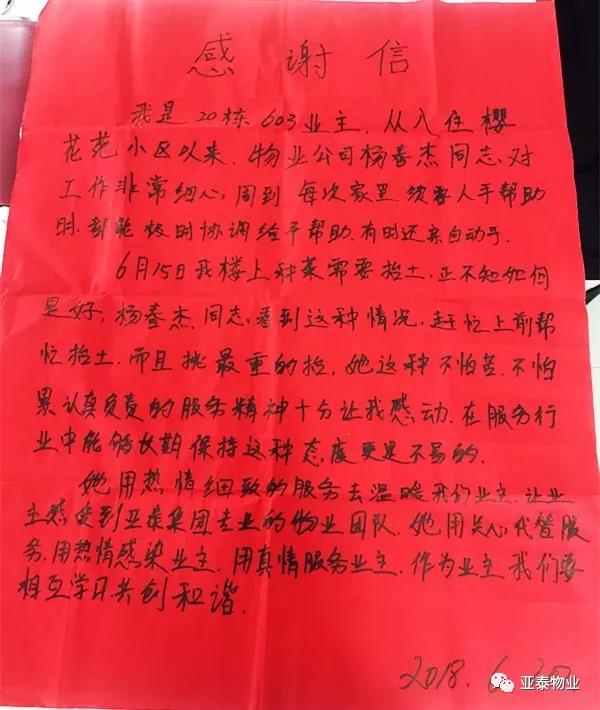 感谢信
我是20栋603业主,从入住樱
花苑小区以来,物业公司杨春杰同志,对
工作非常细心,周到,每次家里须要人手帮助
时,都能极时协调给予帮助,有时还亲自动手.
6月15日我楼上种菜需要抬土,正不知如何
是好,杨春杰同志,看到这种情况,赶忙上前帮
忙抬土,而且挑最重的抬,她这种不怕苦、不怕
累认真负责的服务精神十分让我感动.在服务行
业中能够长期保持这种态度更是不易的.
她用热情细致的服务去温暖我们业主,让业
主感受到亚泰集团专业的物业团队.她用关心代替服
务,用热情感染业主.用真情服务业主.作为业主我们要
相互学习共创和谐.
2018.6.20
亚泰物业